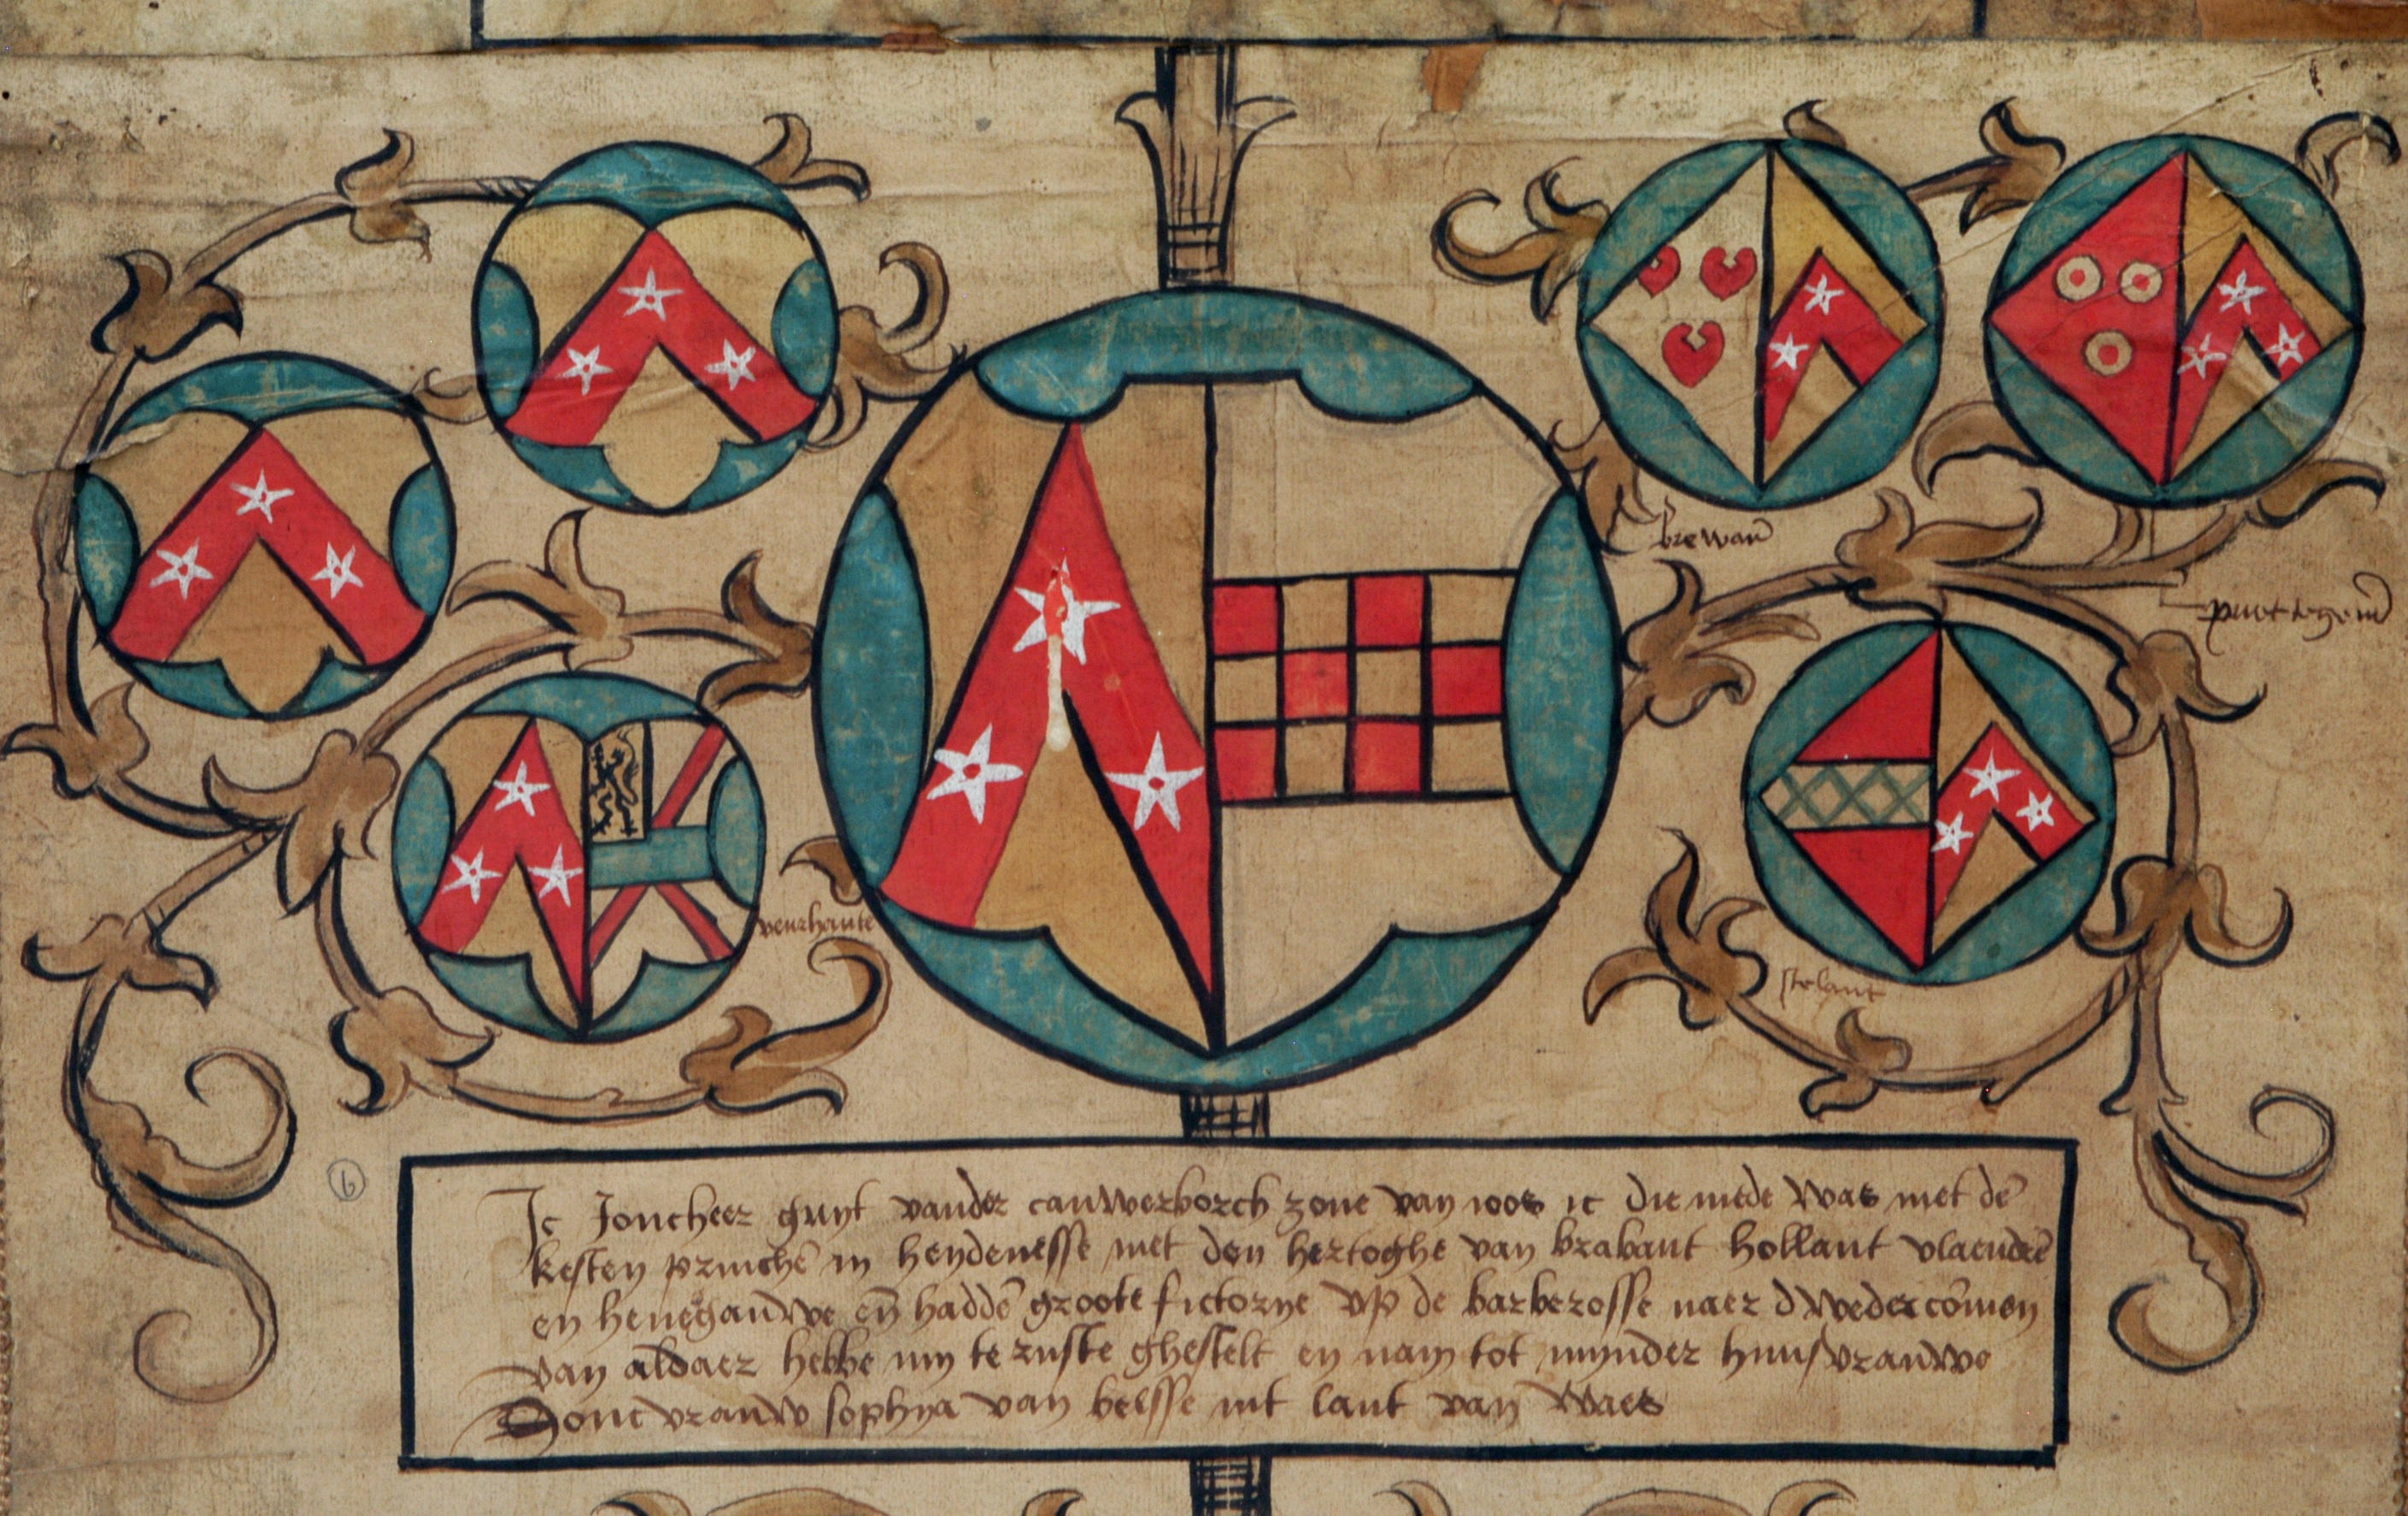 brewań
puettegem̄
veurhoute
stelant
6
Ic Joncheer guyt vander cauwerborch zone van joos ic die mede was met dē
kesten princhē in heydenesse met den hertoghe van brabant hollant vlaendrē
en henegauwe en̄ haddē groote fictorye vp de barberosse naer d wedercōmen
van aldaer hebbe my te ruste ghestelt en nam tot mynder huusvrauwe
Joncvrauw sophya van belsse uit lant van Waes